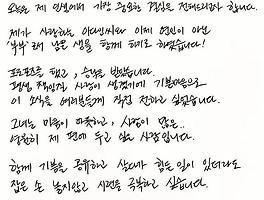 오늘은 제 인생에서 가장 중요한 결심을 전해드리려 합니다.
제가 사랑하는 아다씨와 이제 연인이 아닌
'부부'로서 남은 생을 함께 하기로 하였습니다!
프로포즈를 했고, 승낙을 받았습니다.
평생 책임질 사람이 생겼기에 기쁜마음으로
이 소식을 여러분들께 직접 전하고 싶었습니다.
그녀는 마음이 따뜻하고, 사랑이 많은..
영원히 제 편에 두고 싶은 사람입니다.
함께 기쁨을 공유하고 살다가 힘든 일이 있더라도
잡은 손 놓지않고 시련을 극복하고 싶습니다.